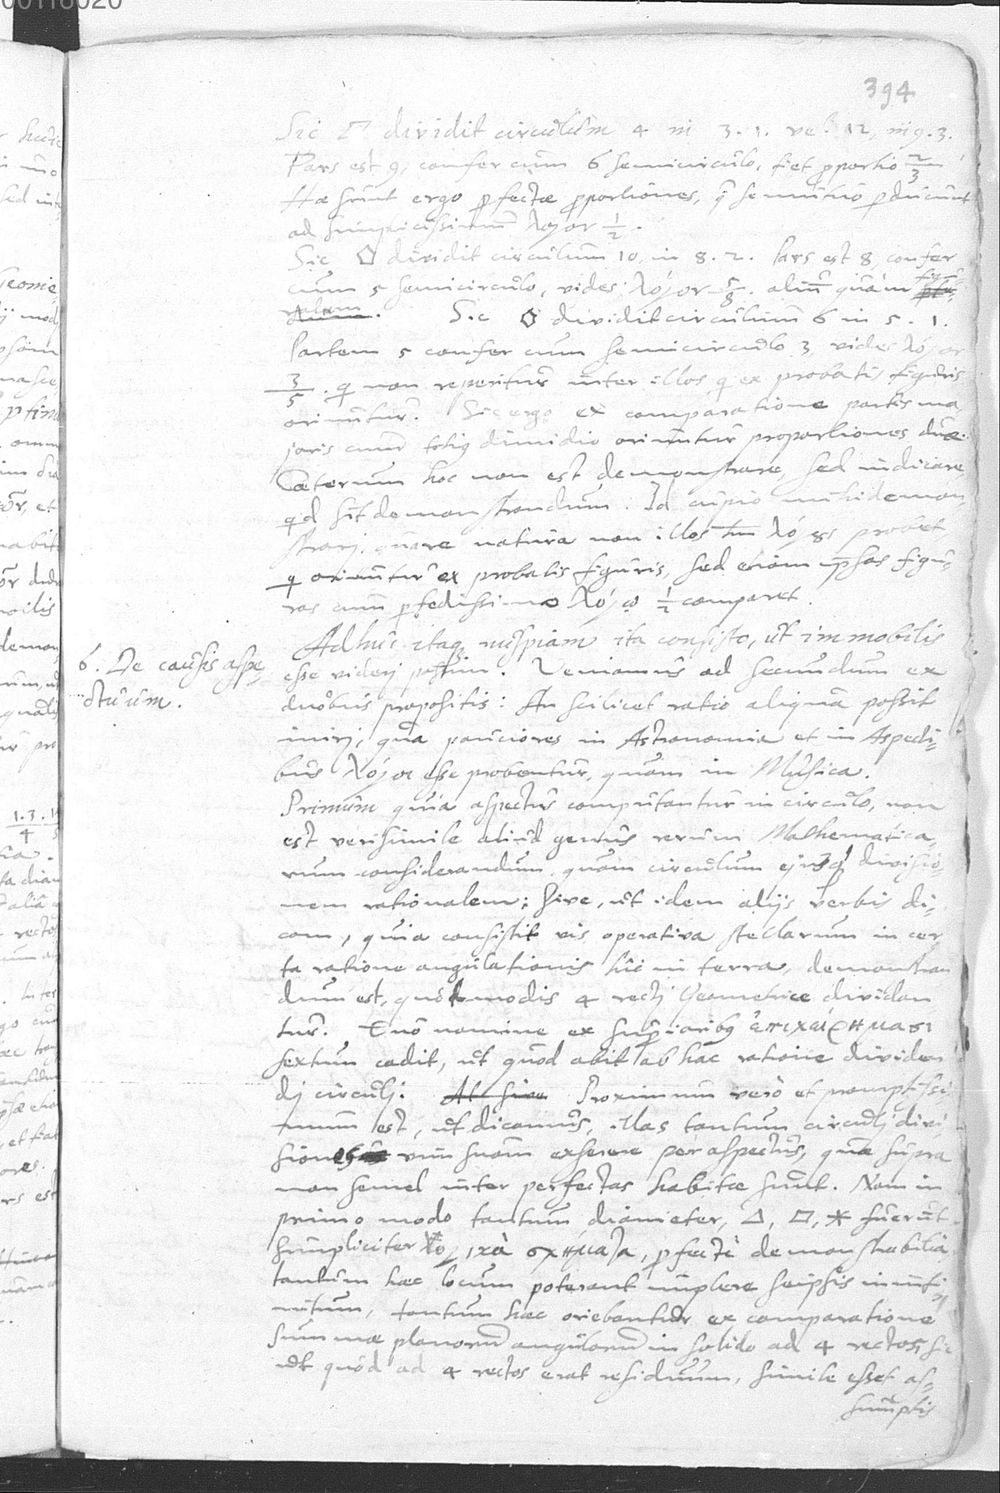 394
Sic □ dividit circulum 4 in 3. 1. vel 12, in 9. 3.
Pars est 9, confer cum 6 semicirculo, fiet proportio 2/3
Hæ sunt ergo perfectæ proportiones, q̃ se mutuò producunt
ad simplicissimum λόγον 1/2.
Sic ⬠ dividit circulum 10, in 8. 2. Pars est 8 confer
cum 5 semicirculo, vides λόγον 5/8. aliũ quàm figu-
ratam. Sic ⬡ dividit circulum 6 in 5. 1.
Partem 5 confer cum semicirculo 3 vides λόγον
3/5. q non reperitur inter illos q ex probatis figuris
oriuntur. Sic ergo ex comparatione partis ma-
joris cum totiq dimidio oriuntur proportiones duæ.
Cæterum hoc non est demonstrare, sed indicare
qd sit demonstrandum. Id cupio mihi demon-
strari, quare natura non illos tm̃ λόγ8s probet
q oriuntur ex probatis figuris, sed etiam ipsas figu-
ras cum perfectissimo λόγῳ 1/2 comparet.
6. De causis aspe-
ctuum.
Adhuc itaq nuspiam ita consisto, ut immobilis
esse videri possim. Veniamus ad secundum ex
duobus propositis: An scilicet ratio aliqua possit
iniri, qua pauciores in Astronomia et in Aspecti-
bus λόγοι esse probentur, quam in Musica.
Primùm quia aspectus computantur in circulo, non
est verisimile aliud genus rerum Mathematica-
rum considerandum, quam circulum ejusq divisio-
nem rationalem: Sive, ut idem alijs verbis di-
cam, quia consistit vis operativa stellarum in cer-
ta ratione angulationis hic in terra, demonstran
dum est, quot modis 4 recti Geometrice dividan
tur. Quo nomine ex superioribq ἐπιχειρήμασι
sextum cadit, ut quod abit ab hac ratione dividen
di circuli. At sive Proximum verò et promptissi-
mum est, ut dicamus, illas tantum circuli divi-
siones vim suam exserere per aspectus, quæ supra
non semel inter perfectas habitæ sunt. Nam in
primo modo tantum diameter, △, □, ✶ fuerunt
simpliciter λογικὰ σχήματα, perfectè demonstrabilia
tantùm hæc locum poterant implere seipsis in infi-
nitum, tantum hæc oriebantur ex comparatione
summæ planorũ angulorũ in solido ad 4 rectos, sic
ut quod ad 4 rectos erat residuum, simile esset as-
sumptis